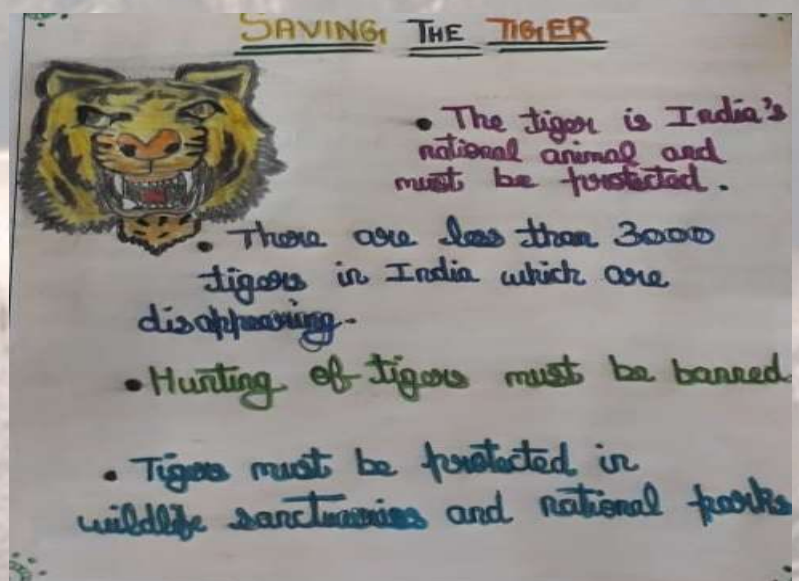 SAVING THE TIGER
• The tiger is India's
national animal and
must be protected.
• There are less than 3000
tigers in India which are
disappearing.
• Hunting of tigers must be banned
• Tigers must be protected in
wildlife sanctuaries and national parks